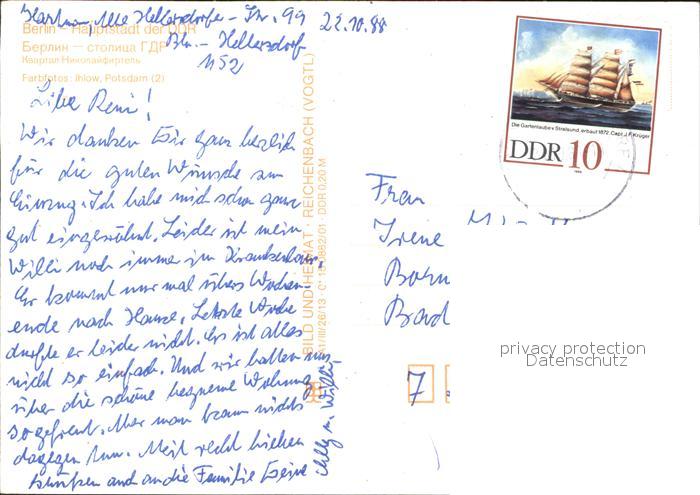 Hartman, Alte Hellersdorfer-Str. 99 22.10.88
Berlin – Hauptstadt der DDR
Bln.- Hellersdorf
Берлин — столица ГДР
1152
Квартал Николайфиртель
Farbfotos: Ihlow, Potsdam (2)
Liebe Reni!
Wir danken Dir ganz herzlich
für die guten Wünsche zum
Einzug. Ich habe mich schon ganz
gut eingewöhnt. Leider ist mein
Willi noch immer im Krankenhaus.
Er kommt nur mal übers Wochen-
ende nach Hause. Letzte Woche
durfte er leider nicht. Es ist alles
nicht so einfach. Und wir hatten uns
über die schöne bequeme Wohnung
so gefreut. Aber man kann nichts
dagegen tun. Mit recht lieben
Grüßen auch an die Familie Deine
u. Willi
BILD UND HEIMAT REICHENBACH (VOGTL)
DDR 0,20 M
Die Gartenlaube • Stralsund, erbaut 1872, Capt. J.F. Krüger
DDR 10
1988
Frau
Irene
Born
Bad
7
privacy protection
Datenschutz